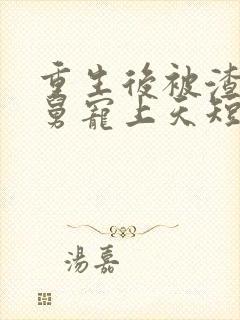 重生後被渣
舅寵上天短
湯嘉